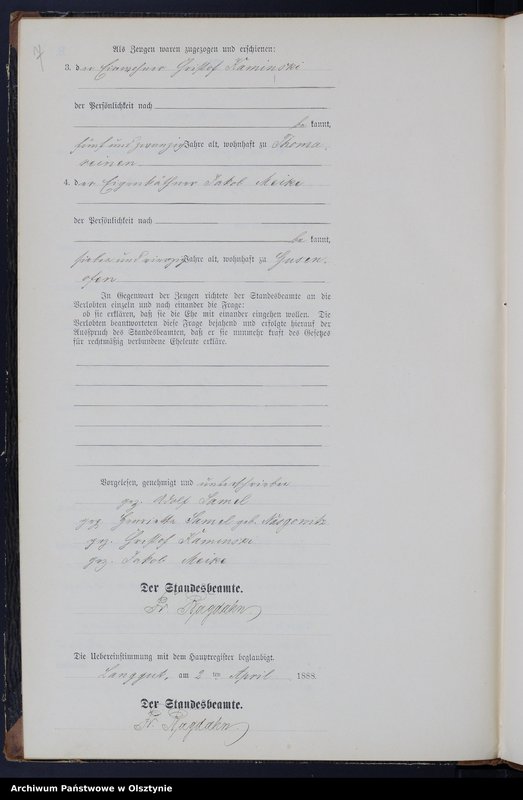 Als Zeugen waren zugezogen und erschienen:
3. der Einwohner Gristof Kaminski
der Persönlichkeit nach
be kannt,
fünf und zwanzig Jahre alt, wohnhaft zu Thoma-
reinen
4. der Eigenkäthner Jakob Meike
der Persönlichkeit nach
be kannt,
sieben und vierzig Jahre alt, wohnhaft zu Gusen-
ofen
In Gegenwart der Zeugen richtete der Standesbeamte an die
Verlobten einzeln und nach einander die Frage:
ob sie erklären, daß sie die Ehe mit einander eingehen wollen. Die
Verlobten beantworteten diese Frage bejahend und erfolgte hierauf der
Ausspruch des Standesbeamten, daß er sie nunmehr kraft des Gesetzes
für rechtmäßig verbundene Eheleute erkläre.
Vorgelesen, genehmigt und unterschrieben
gez. Adolf Samel
gez. Henriette Samel geb.
gez. Gristof Kaminski
gez. Jakob Meike
Der Standesbeamte.
Fr. Ragdahn
Die Uebereinstimmung mit dem Hauptregister beglaubigt.
Langgut, am 2 ten April 1888.
Der Standesbeamte.
Fr. Ragdahn
Archiwum Państwowe w Olsztynie